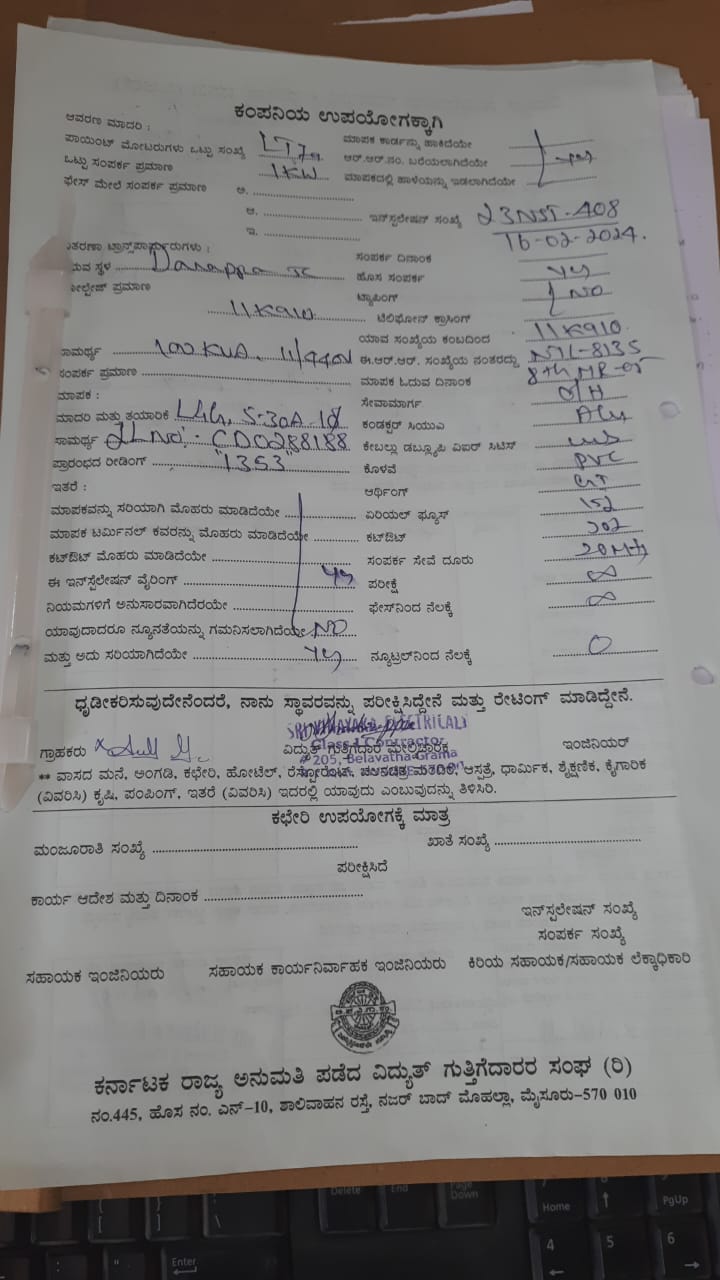 ಕಂಪನಿಯ ಉಪಯೋಗಕ್ಕಾಗಿ
ಆವರಣ ಮಾದರಿ :
ಪಾಯಿಂಟ್ ಮೋಟರುಗಳು ಒಟ್ಟು ಸಂಖ್ಯೆ ಮಾಪಕ ಕಾರ್ಡನ್ನು ಹಾಕಿದೆಯೇ
ಒಟ್ಟು ಸಂಪರ್ಕ ಪ್ರಮಾಣ 1KW ಆರ್.ಆರ್.ನಂ. ಬರೆಯಲಾಗಿದೆಯೇ yes
ಫೇಸ್ ಮೇಲೆ ಸಂಪರ್ಕ ಪ್ರಮಾಣ ಅ. ಮಾಪಕದಲ್ಲಿ ಹಾಳೆಯನ್ನು ಇಡಲಾಗಿದೆಯೇ
ಆ. ಇನ್‌ಸ್ಪಲೇಷನ್ ಸಂಖ್ಯೆ 23NST-408
ಇ. 16-02-2024.
ತರಣಾ ಟ್ರಾನ್ಸ್‌ಫಾರ್ಮರುಗಳು : ಸಂಪರ್ಕ ದಿನಾಂಕ
ರುವ ಸ್ಥಳ Dasappa ಹೊಸ ಸಂಪರ್ಕ yes
ೋಲ್ಟೇಜ್ ಪ್ರಮಾಣ ಟ್ಯಾಪಿಂಗ್ NO
11K910 ಟೆಲಿಫೋನ್ ಕ್ರಾಸಿಂಗ್
ಯಾವ ಸಂಖ್ಯೆಯ ಕಂಬದಿಂದ 11K910
ಸಾಮರ್ಥ್ಯ 100KVA. 11/440V ಈ.ಆರ್.ಆರ್. ಸಂಖ್ಯೆಯ ನಂತರದ್ದು NJL-8135
ಸಂಪರ್ಕ ಪ್ರಮಾಣ ಮಾಪಕ ಓದುವ ದಿನಾಂಕ 8th MR-05
ಮಾಪಕ : ಸೇವಾಮಾರ್ಗ O/H
ಮಾದರಿ ಮತ್ತು ತಯಾರಿಕೆ L&G, 5-30A-1Ø ಕಂಡಕ್ಟರ್ ಸಿಯುಎ Alu
ಸಾಮರ್ಥ್ಯ SLNO: CD0288188 ಕೇಬಲ್ಲು ಡಬ್ಲ್ಯೂಪಿ ವಿಐರ್ ಸಿಟಿಸ್
ಪ್ರಾರಂಭದ ರೀಡಿಂಗ್ "1353" ಕೊಳವೆ PVC
ಇತರೆ : ಆರ್ಥಿಂಗ್ GI
ಮಾಪಕವನ್ನು ಸರಿಯಾಗಿ ಮೊಹರು ಮಾಡಿದೆಯೇ ಏರಿಯಲ್ ಫ್ಯೂಸ್
ಮಾಪಕ ಟರ್ಮಿನಲ್ ಕವರನ್ನು ಮೊಹರು ಮಾಡಿದೆಯೇ ಕಟ್‌ಔಟ್
ಕಟ್‌ಔಟ್ ಮೊಹರು ಮಾಡಿದೆಯೇ ಸಂಪರ್ಕ ಸೇವೆ ದೂರು
ಈ ಇನ್‌ಸ್ಪೆಲೇಷನ್ ವೈರಿಂಗ್ yes ಪರೀಕ್ಷೆ ∞
ನಿಯಮಗಳಿಗೆ ಅನುಸಾರವಾಗಿದೆರೆಯೇ ಫೇಸ್‌ನಿಂದ ನೆಲಕ್ಕೆ ∞
ಯಾವುದಾದರೂ ನ್ಯೂನತೆಯನ್ನು ಗಮನಿಸಲಾಗಿದೆಯೇ NO
ಮತ್ತು ಅದು ಸರಿಯಾಗಿದೆಯೇ Yes ನ್ಯೂಟ್ರಲ್‌ನಿಂದ ನೆಲಕ್ಕೆ 0
ಧೃಡೀಕರಿಸುವುದೇನೆಂದರೆ, ನಾನು ಸ್ಥಾವರವನ್ನು ಪರೀಕ್ಷಿಸಿದ್ದೇನೆ ಮತ್ತು ರೇಟಿಂಗ್ ಮಾಡಿದ್ದೇನೆ.
ELECTRICALS
ಗ್ರಾಹಕರು ವಿದ್ಯುತ್ ಗುತ್ತಿಗೆದಾರ ಮೇಲ್ವಿಚಾರಕ ಇಂಜಿನಿಯರ್
Class-1 Contractor
# 205, Belavatha Grama
** ವಾಸದ ಮನೆ, ಅಂಗಡಿ, ಕಛೇರಿ, ಹೋಟೆಲ್, ರೆಸ್ಟೋರೆಂಟ್, ಚಲನಚಿತ್ರ ಮಂದಿರ, ಆಸ್ಪತ್ರೆ, ಧಾರ್ಮಿಕ, ಶೈಕ್ಷಣಿಕ, ಕೈಗಾರಿಕೆ
(ವಿವರಿಸಿ) ಕೃಷಿ, ಪಂಪಿಂಗ್, ಇತರೆ (ವಿವರಿಸಿ) ಇದರಲ್ಲಿ ಯಾವುದು ಎಂಬುವುದನ್ನು ತಿಳಿಸಿರಿ.
ಕಛೇರಿ ಉಪಯೋಗಕ್ಕೆ ಮಾತ್ರ
ಮಂಜೂರಾತಿ ಸಂಖ್ಯೆ ಖಾತೆ ಸಂಖ್ಯೆ
ಪರೀಕ್ಷಿಸಿದೆ
ಕಾರ್ಯ ಆದೇಶ ಮತ್ತು ದಿನಾಂಕ
ಇನ್‌ಸ್ಪಲೇಷನ್ ಸಂಖ್ಯೆ
ಸಂಪರ್ಕ ಸಂಖ್ಯೆ
ಸಹಾಯಕ ಇಂಜಿನಿಯರು ಸಹಾಯಕ ಕಾರ್ಯನಿರ್ವಾಹಕ ಇಂಜಿನಿಯರು ಕಿರಿಯ ಸಹಾಯಕ/ಸಹಾಯಕ ಲೆಕ್ಕಾಧಿಕಾರಿ
ಕರ್ನಾಟಕ ರಾಜ್ಯ ಅನುಮತಿ ಪಡೆದ ವಿದ್ಯುತ್ ಗುತ್ತಿಗೆದಾರರ ಸಂಘ (ರಿ)
ನಂ.445, ಹೊಸ ನಂ. ಎನ್-10, ಶಾಲಿವಾಹನ ರಸ್ತೆ, ನಜರ್ ಬಾದ್ ಮೊಹಲ್ಲಾ, ಮೈಸೂರು-570 010
Delete End Page Down
Home ↑ PgUp
{ [ } ] | \
4 5 6
Enter